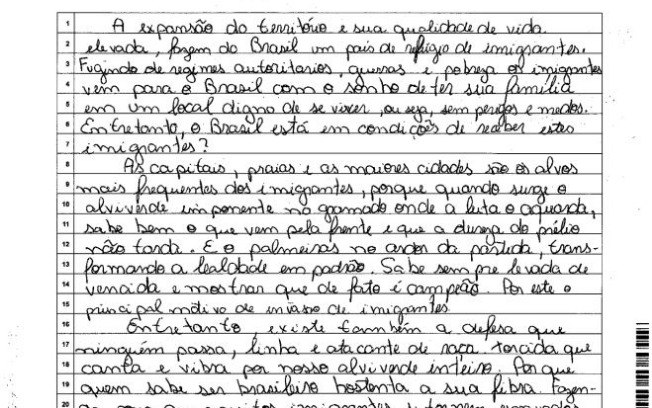 1 A expansão do território e sua qualidade de vida
2 elevada, fazem do Brasil um país de refúgio de imigrantes.
3 Fugindo de regimes autoritários, guerras e pobreza os imigrantes
4 vem para o Brasil com o sonho de ter sua família
5 em um local digno de se viver, ou seja, sem perigos e medos.
6 Entretanto, o Brasil está em condições de receber estes
7 imigrantes?
8 As capitais, praias e as maiores cidades são os alvos
9 mais frequentes dos imigrantes, porque quando surge o
10 alviverde imponente no gramado onde a luta o aguarda,
11 sabe bem o que vem pela frente e que a dureza do prélio
12 não tarda. E o palmeiras no ardor da partida, trans-
13 formando a lealdade em padrão. Sabe sempre levada de
14 vencida e mostrar que de fato é campeão. Por este o
15 principal motivo de invasão de imigrantes
16 Entretanto, existe também a defesa que
17 ninguém passa, linha e atacante de raça. torcida que
18 canta e vibra por nosso alviverde inteiro. Por que
19 quem sabe ser brasileiro hostenta a sua fibra. Fazen-
20 imigrantes